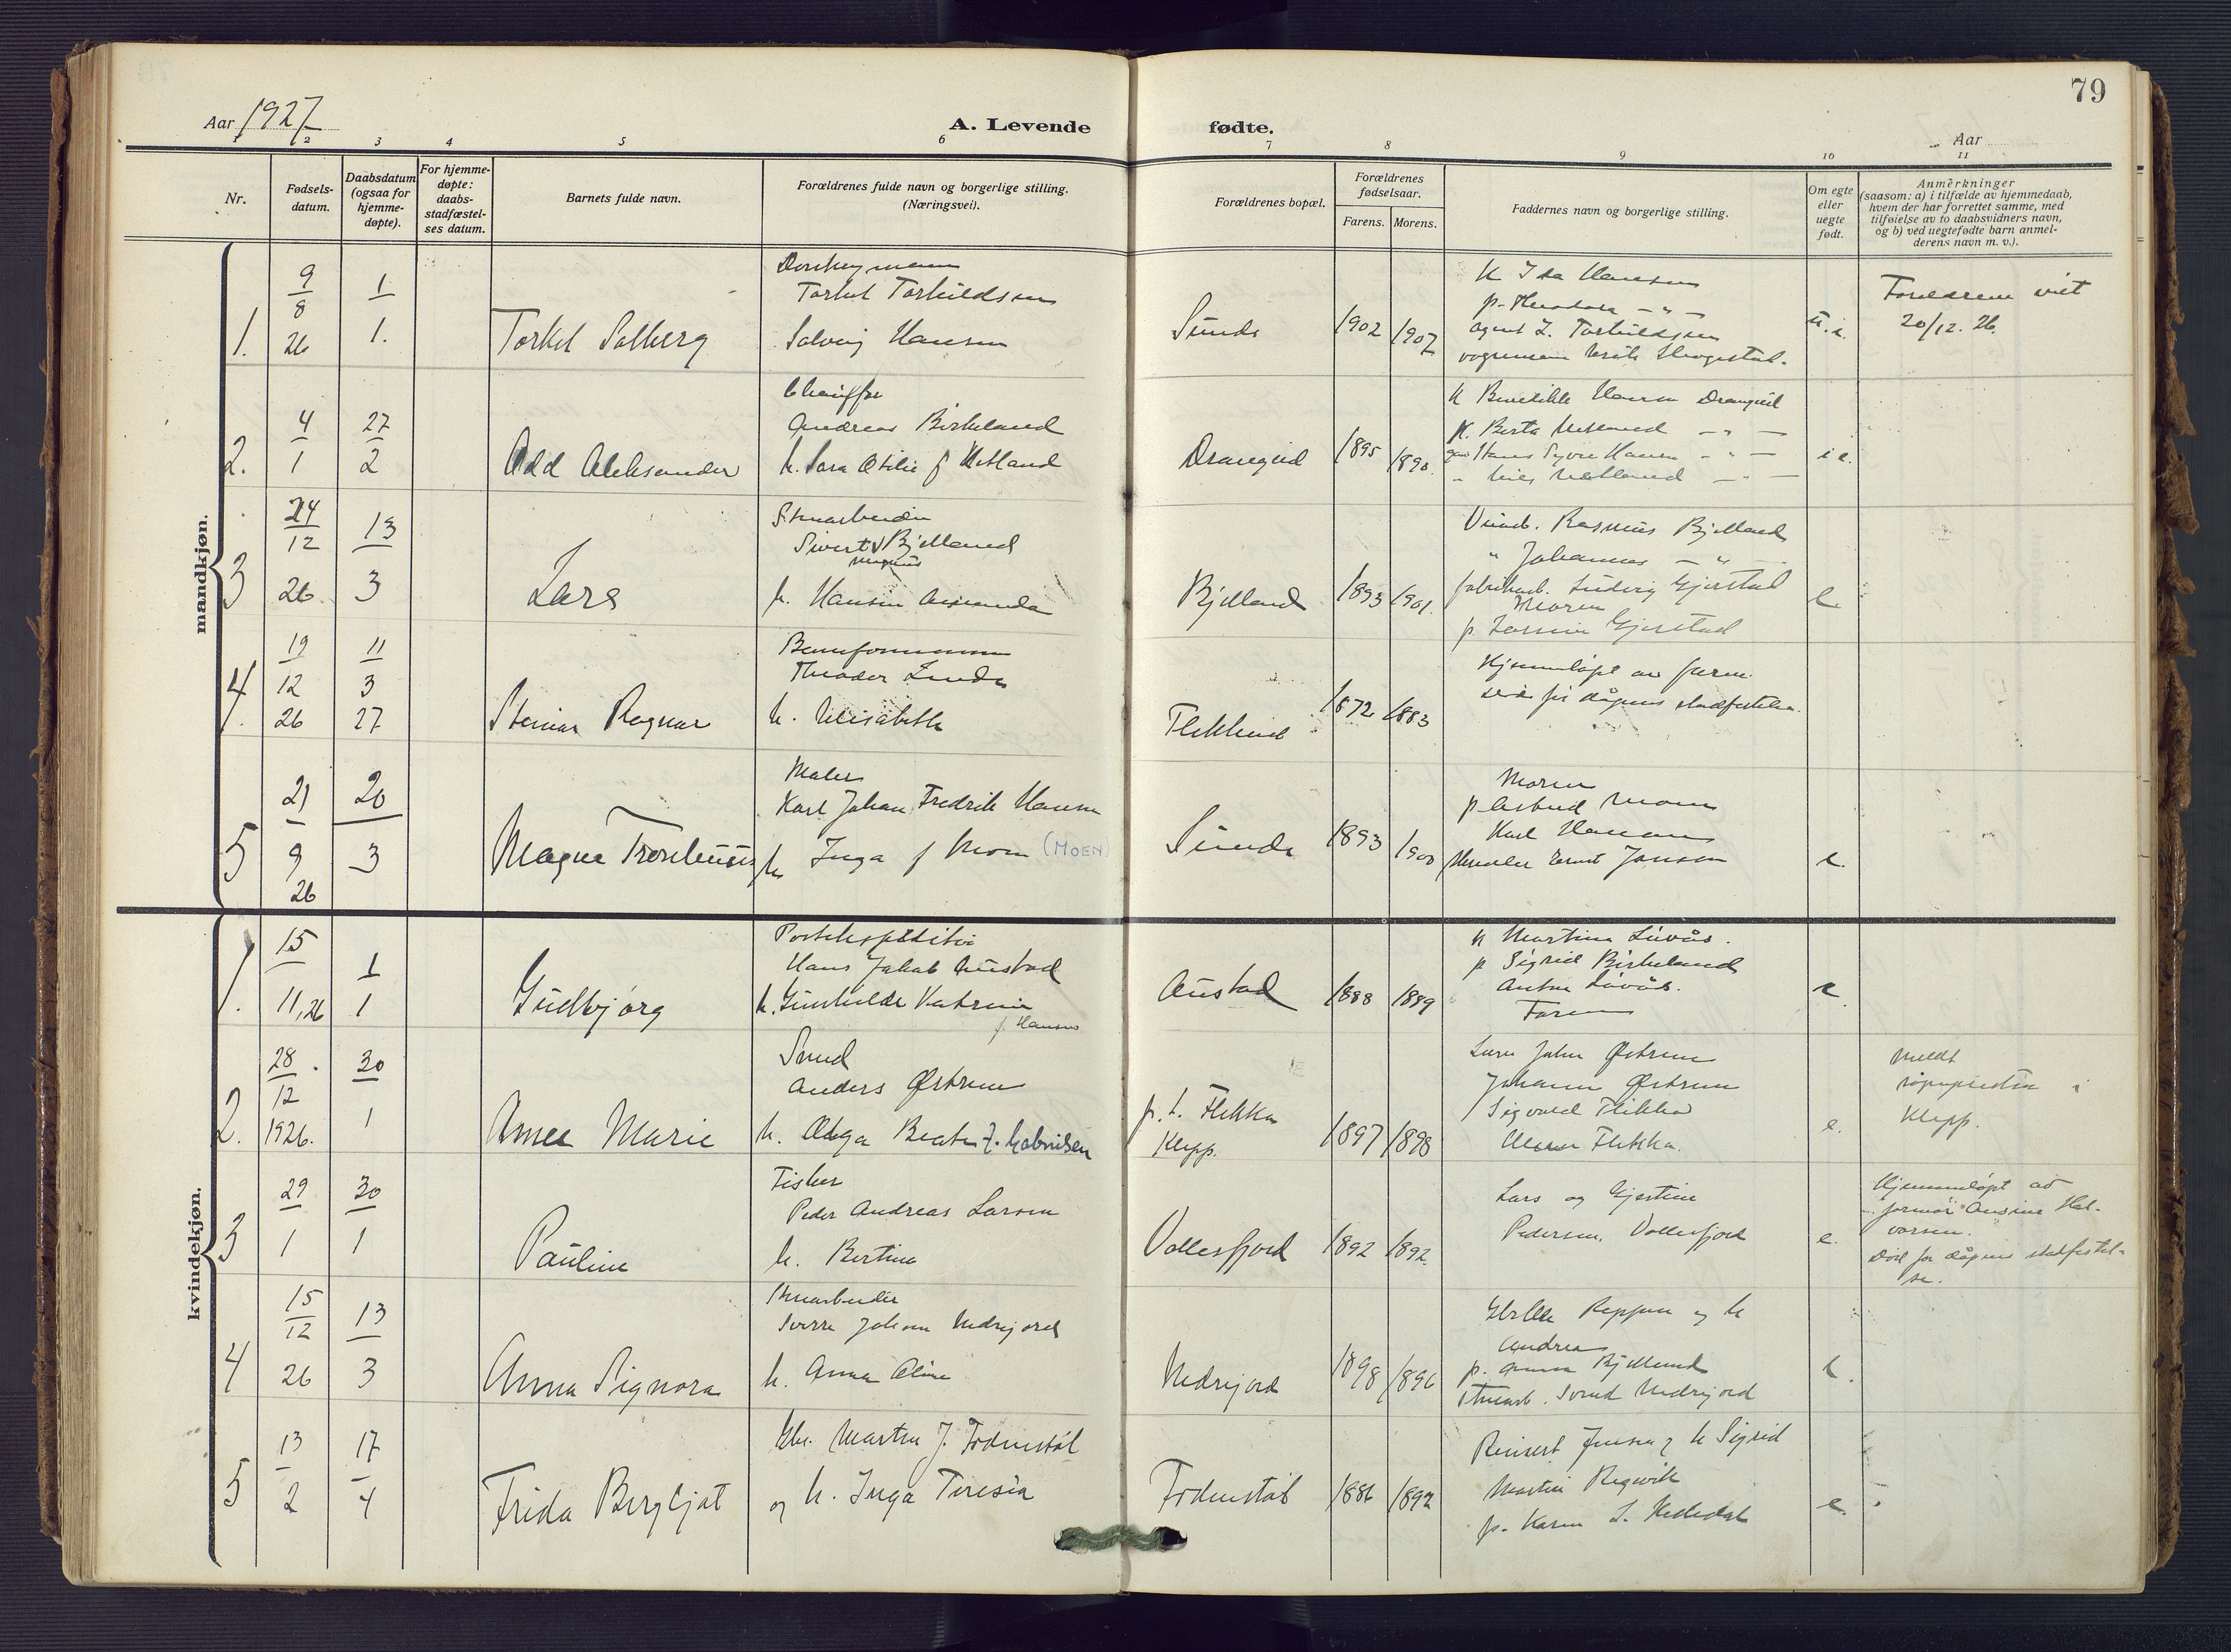 79
Aar 1927
A. Levende fødte.
Aar
1 2 3 4 5 6 7 8 9 10 11
Nr.
Fødsels-
datum.
Daabsdatum
(ogsaa for
hjemme-
døpte).
For hjemme-
døpte:
daabs-
stadfæstel-
ses datum.
Barnets fulde navn.
Forældrenes fulde navn og borgerlige stilling.
(Næringsvei).
Forældrenes bopæl.
Forældrenes
fødselsaar.
Farens. Morens.
Faddernes navn og borgerlige stilling.
Om egte
eller
uegte
født.
Anmerkninger
(saasom: a) i tilfælde av hjemmedaab,
hvem der har forrettet samme, med
tilføielse av to daabsvidners navn,
og b) ved uegtefødte barn anmel-
derens navn m. v.).
mandkjøn.
1. 9/8 26 1/1. Torkel Solberg
Donkeymann
Torkel Torkildsen
Solveig Hansen
Sunde 1902 1907
K Ida Hansen
p. Theodora -"-
agent L. Torkildsen
u.e.
Foreldrene viet
20/12. 26.
2. 4/1 27/2 Odd Aleksander
Chauffør
Andreas Birkeland
h. Sara Otilie f Netland
Drangeid 1895 1890.
K Benedikte Hansen Drangeid
p. Berta Netland -"-
Hans Sigvre Hansen -"-
" Netland -"-
e.
3 24/12 26. 13/3 Lars
Sivert Bjelland
Magnus
h. Hansine Amanda
Bjelland 1893 1901.
Rasmus Bjelland
" Johannes -"-
fabrikarb. Ludvig Gjerstad
Moren
p. Gjerstad
e.
4. 19/12 26 11/3 27 Steinar Ragnar
Teodor Lunde
h. Elisabeth
Flekkerø 1872 1883
Hjemmedøpt av faren.
død før dåpens stadfestelse.
5 21/9 26 20/3 Magne
Maler
Karl Johan Fredrik Hansen
h Inga f Moen (MOEN)
Sunde 1893 1900
Moren
p Moen
Karl Hansen
Ernst Jansen
e.
kvindekjøn.
1. 15/11, 26 1/1 Gudbjørg
Postekspeditør
Hans Jakob Austad
h. Gunhilde Katrine
f. Hansen
Austad 1888 1889
K Martina Lövås.
p Sigrid Birkeland
Anton Lövås.
Faren
e.
2. 28/12 1926. 30/1 Anna Marie
Smed
Anders Østrem
h. Olga Beate f. Gabrielsen
p. t. Flikka
Klepp. 1897 1898
John Østrem
Johanna Østrem
Sigvald Flikka
Flikka.
e.
Meldt
sognepresten i
Klepp.
3 29/1 30/1 Pauline
Fisker
Peder Andreas Larsen
h. Bertina
Vollesfjord 1892 1892.
Lars og Gjertine
Pedersen, Vollesfjord
e.
Hjemmedøpt av
jormor Ansine Hal-
vorsen.
Död før dåpens stadfestel-
se.
4 15/12 26 13/3 Anna Signora
Sverre Johan Nedrejord
h. Anna Oline
Nedrejord 1898 1896
Reppen og h
Andrea
p. Anna Bjelland
Svend Nedrejord
e.
5 13/2 17/4 Frida Bergljot
Gbr. Martin J. Fodnestøl
og h. Inga Teresia
Fodnestøl 1886 1892
Reinert Jensen og h Sigrid
Martin Regevik
p. Karen L. Heddedal
e.